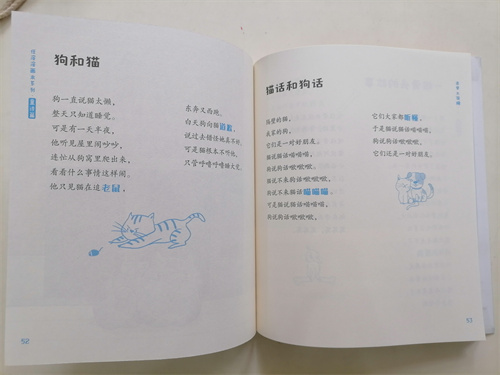 狗和猫
狗一直说猫太懒，
整天只知道睡觉。
可是有一天半夜，
他听见屋里吵吵，
连忙从狗窝里爬出来，
看看什么事情这样闹。
他只见猫在追老鼠，
东奔又西跑。
白天狗向猫道歉，
说过去错怪她真不好。
可是猫根本不听他，
只管呼噜呼噜睡大觉。
52
猫话和狗话
隔壁的猫，
我家的狗，
它们是一对好朋友。
猫说猫话喵喵喵，
狗说狗话汪汪汪。
猫说不来狗话
狗说不来猫话喵喵喵。
可是猫说猫话喵喵喵，
它们大家都听懂。
于是猫说猫话喵喵喵，
它们还是一对好朋友。
53